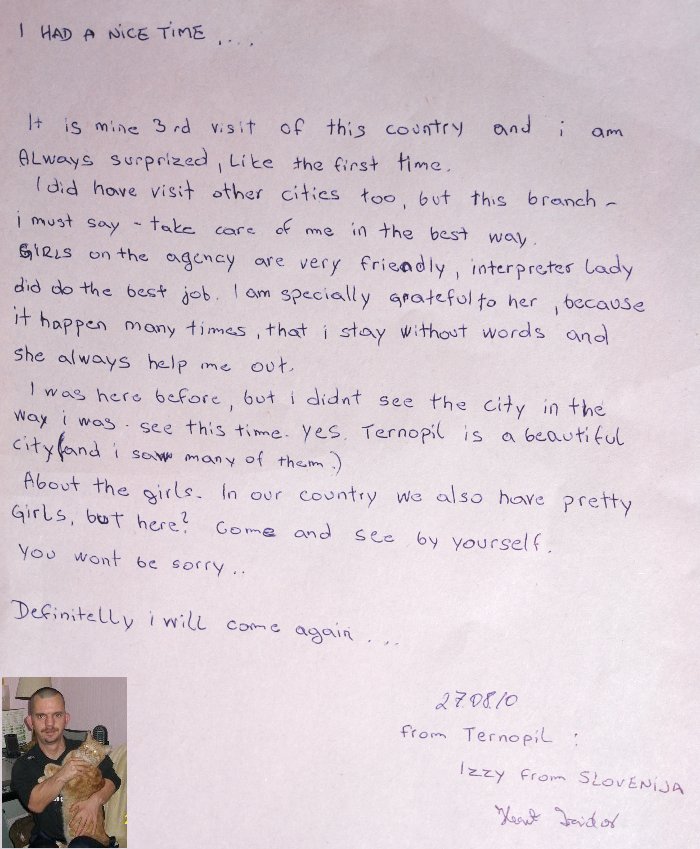 I HAD A NICE TIME ....
It is mine 3rd visit of this country and i am
ALways surprized, Like the first time.
I did have visit other cities too, but this branch -
i must say - take care of me in the best way.
GIRLS on the agency are very friendly, interpreter Lady
did do the best job. I am specially grateful to her, because
it happen many times, that i stay without words and
she always help me out.
I was here before, but i didnt see the city in the
way i was. see this time. yes. Ternopil is a beautiful
city (and i saw many of them.)
About the girls. In our country we also have pretty
Girls, but here? Come and see by yourself.
You wont be sorry..
Definitelly i will come again ...
270810
from Ternopil :
Izzy from SLOVENIJA